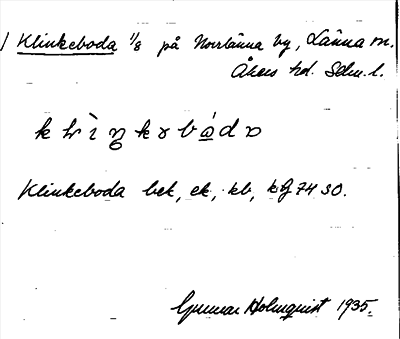 Klinkeboda 1/8 på Norrlänna by, Länna sn.
Åkers hd. Sdm. l.
Klinkeboda bek, ek, kb, kg 74 SO.
Gunnar Holmquist 1935.